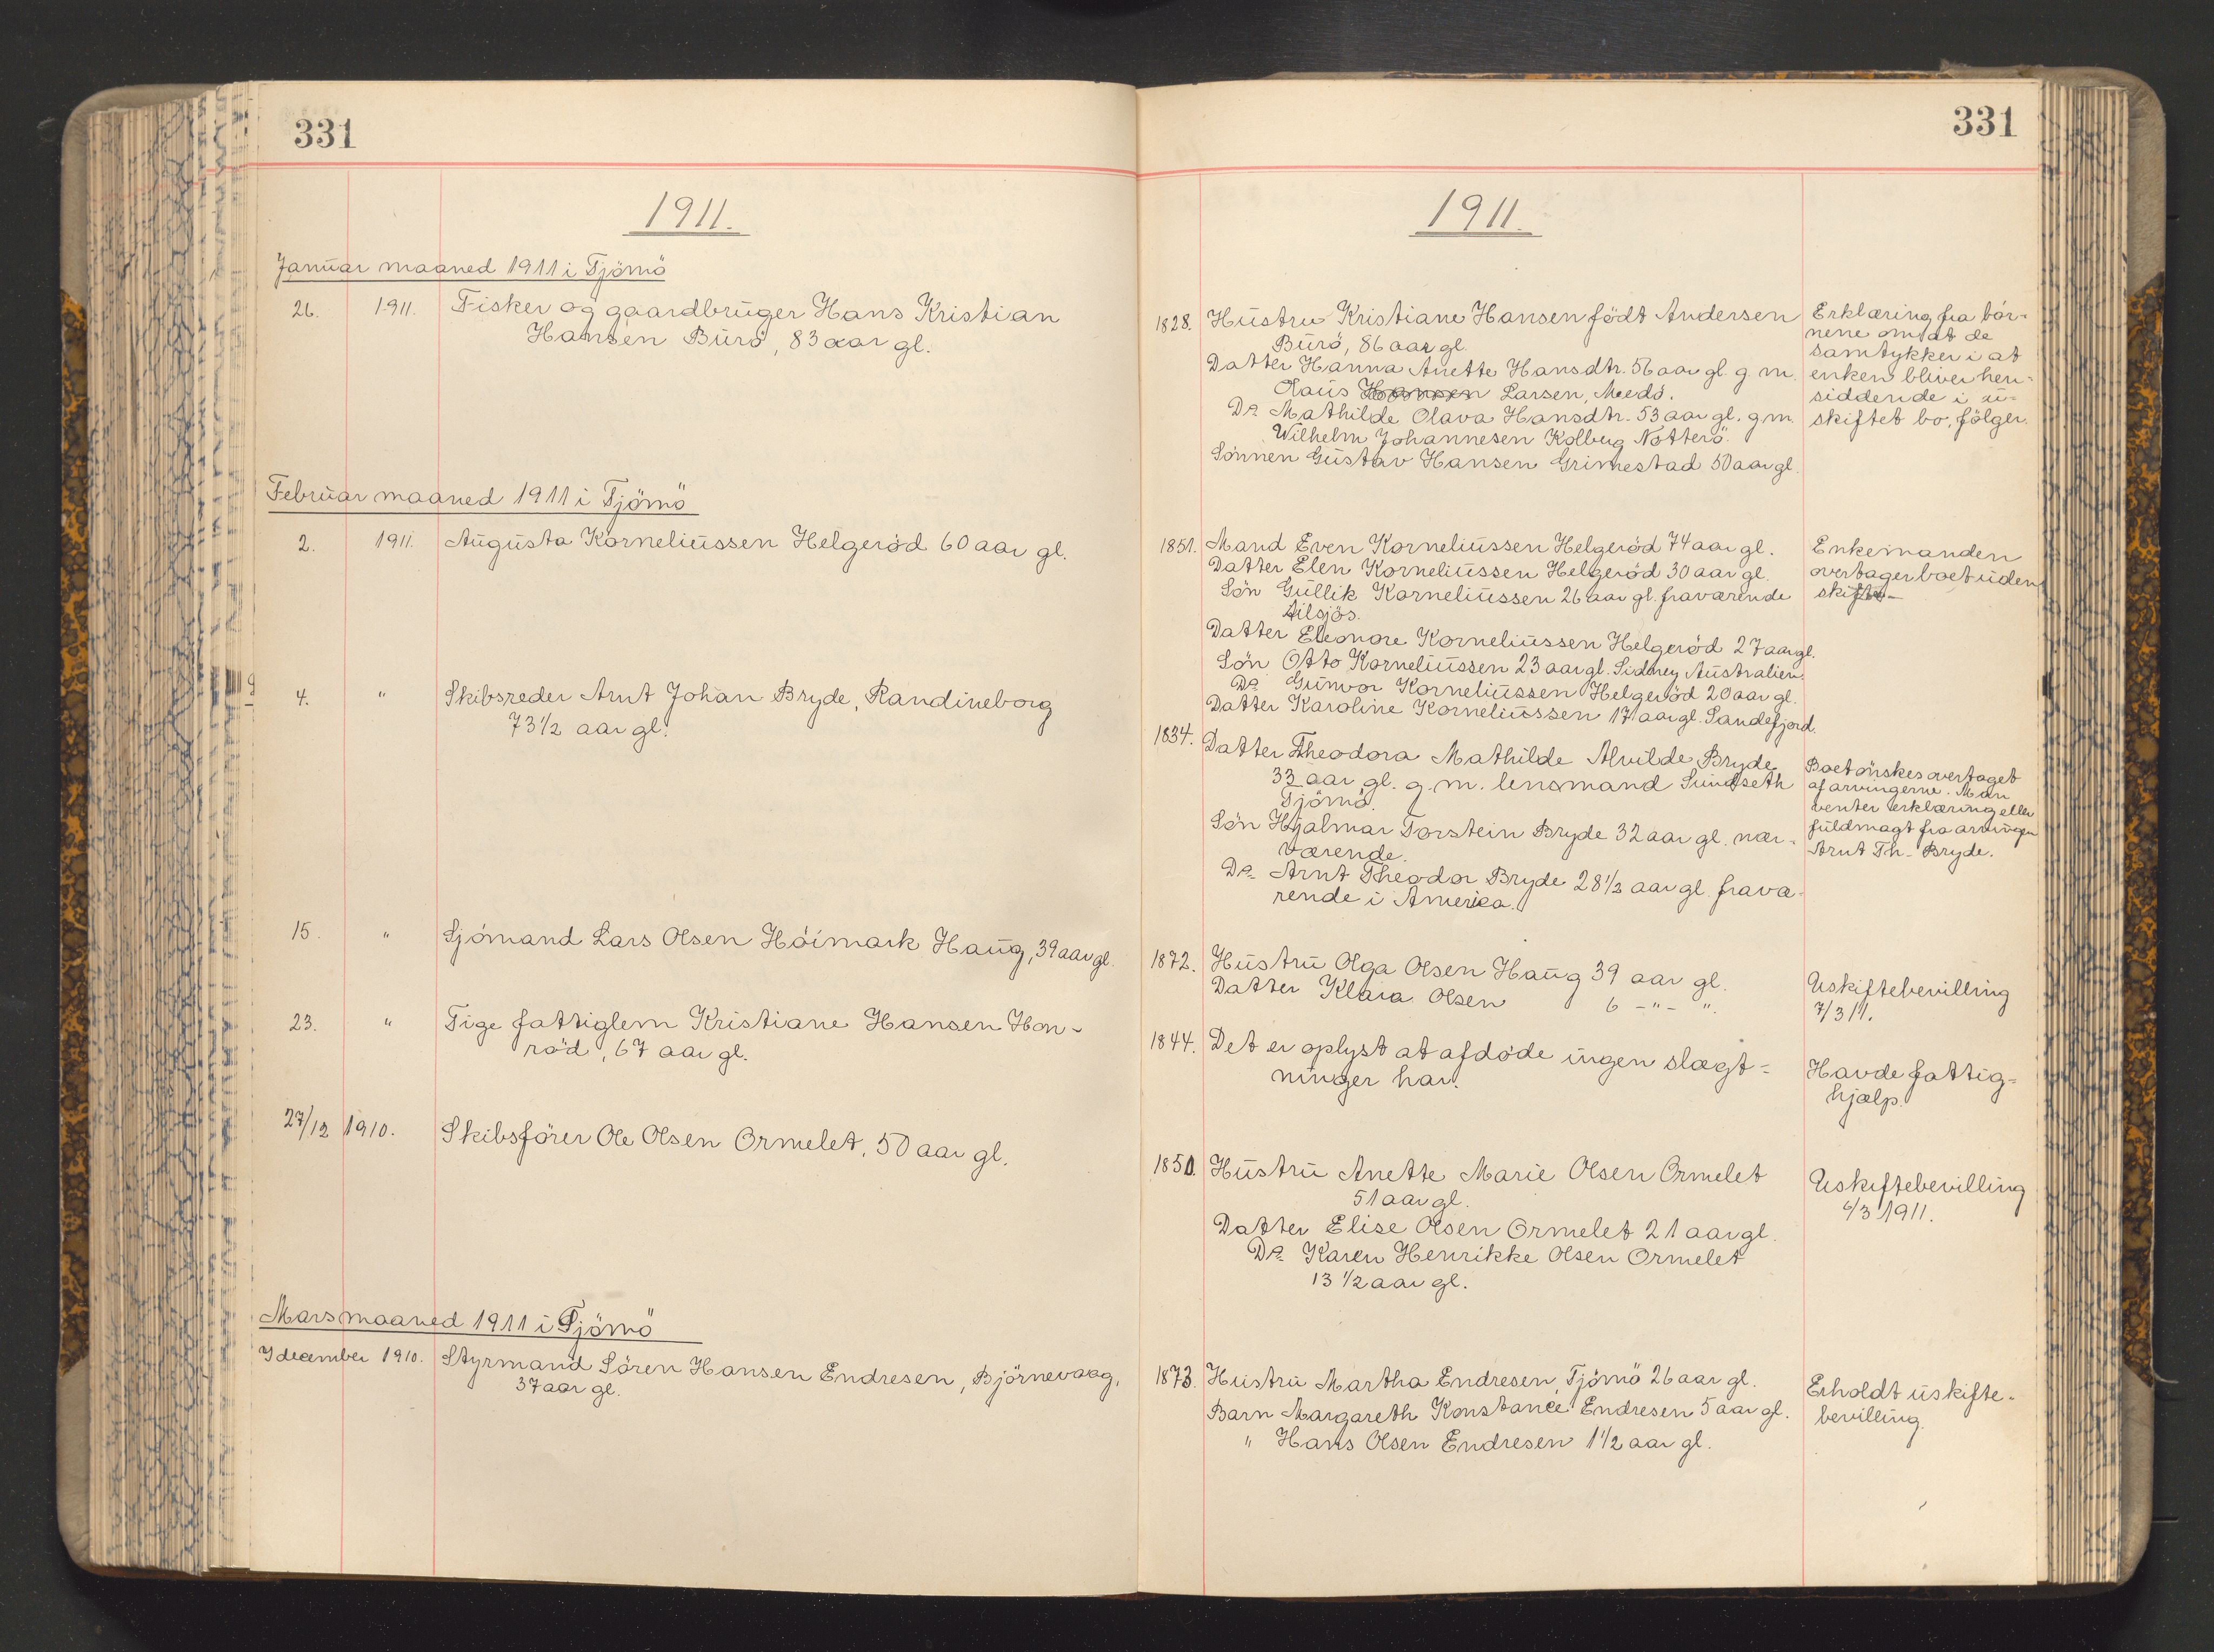 331
1911.
Januar maaned 1911 i Tjömö
26. 1911. Fisker og gaardbruger Hans Kristian
Hansen Burö, 83 aar gl.
Februar maaned 1911 i Tjömö
2. 1911. Augusta Korneliussen Helgeröd 60 aar gl.
4. " Skibsreder Arnt Johan Bryde, Randineborg
73 1/2 aar gl.
15. " Sjömand Lars Olsen Höimark Haug, 39 aar gl.
23. " Pige fattiglem Kristiane Hansen Hon-
röd, 67 aar gl.
27/12 1910. Skibsförer Ole Olsen Ormelet, 50 aar gl.
Mars maaned 1911 i Tjömö
9 december 1910. Styrmand Sören Hansen Endresen, Björnevaag,
37 aar gl.
331
1911.
1828. Hustru Kristiane Hansen födt Andersen
Burö, 86 aar gl.
Datter Hanna Anette Hansdtr. 56 aar gl. g. m.
Olaus Hansen Larsen, Medö.
Do. Mathilde Olava Hansdtr. 53 aar gl. g. m.
Wilhelm Johannesen Kolberg Nötterö.
Sönnen Gustav Hansen Grimestad 50 aar gl.
Erklæring fra bör-
nene om at de
samtykker i at
enken bliver hen-
siddende i u-
skiftet bo, fölger.
1851. Mand Even Korneliussen Helgeröd 74 aar gl.
Datter Elen Korneliussen Helgeröd 30 aar gl.
Sön Gullik Korneliussen 26 aar gl. fraværende
tilsjös.
Datter Eleonore Korneliussen Helgeröd 27 aar gl.
Sön Otto Korneliussen 23 aar gl. Sidney Australien.
Do. Gunvor Korneliussen Helgeröd 20 aar gl.
Datter Karoline Korneliussen 17 aar gl. Sandefjord.
Enkemanden
overtager boet uden
skifte
1834. Datter Theodora Mathilde Alvilde Bryde
33 aar gl. g. m. lensmand Sundseth
Tjömö.
Sön Hjalmar Torstein Bryde 32 aar gl. nær-
værende.
Do. Arnt Theodor Bryde 28 1/2 aar gl. fravæ-
rende i Amerika.
Boet önskes overtaget
af arvingerne. Man
venter erklæring eller
fuldmagt fra arvingen
Arnt Th. Bryde.
1872. Hustru Olga Olsen Haug 39 aar gl.
Datter Klara Olsen 6 - " - ".
Uskiftebevilling
7/3 11.
1844. Det er oplyst at afdöde ingen slægt-
ninger har.
Havde fattig-
hjælp.
1850. Hustru Anette Marie Olsen Ormelet
51 aar gl.
Datter Elise Olsen Ormelet 21 aar gl.
Do. Karen Henrikke Olsen Ormelet
13 1/2 aar gl.
Uskiftebevilling
6/3 1911.
1873. Hustru Martha Endresen, Tjömö 26 aar gl.
Barn Margareth Konstance Endresen 5 aar gl.
" Hans Olsen Endresen 1 1/2 aar gl.
Erholdt uskifte-
bevilling.